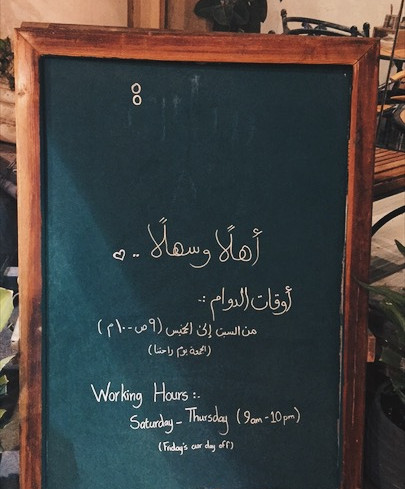 8
أهلًا وسهلًا .. ♡
أوقات الدوام :.
من السبت إلى الخميس (٩ص - ١٠م)
(الجمعة يوم راحتنا)
Working Hours :.
Saturday - Thursday (9am - 10pm)
(Friday's our day off)